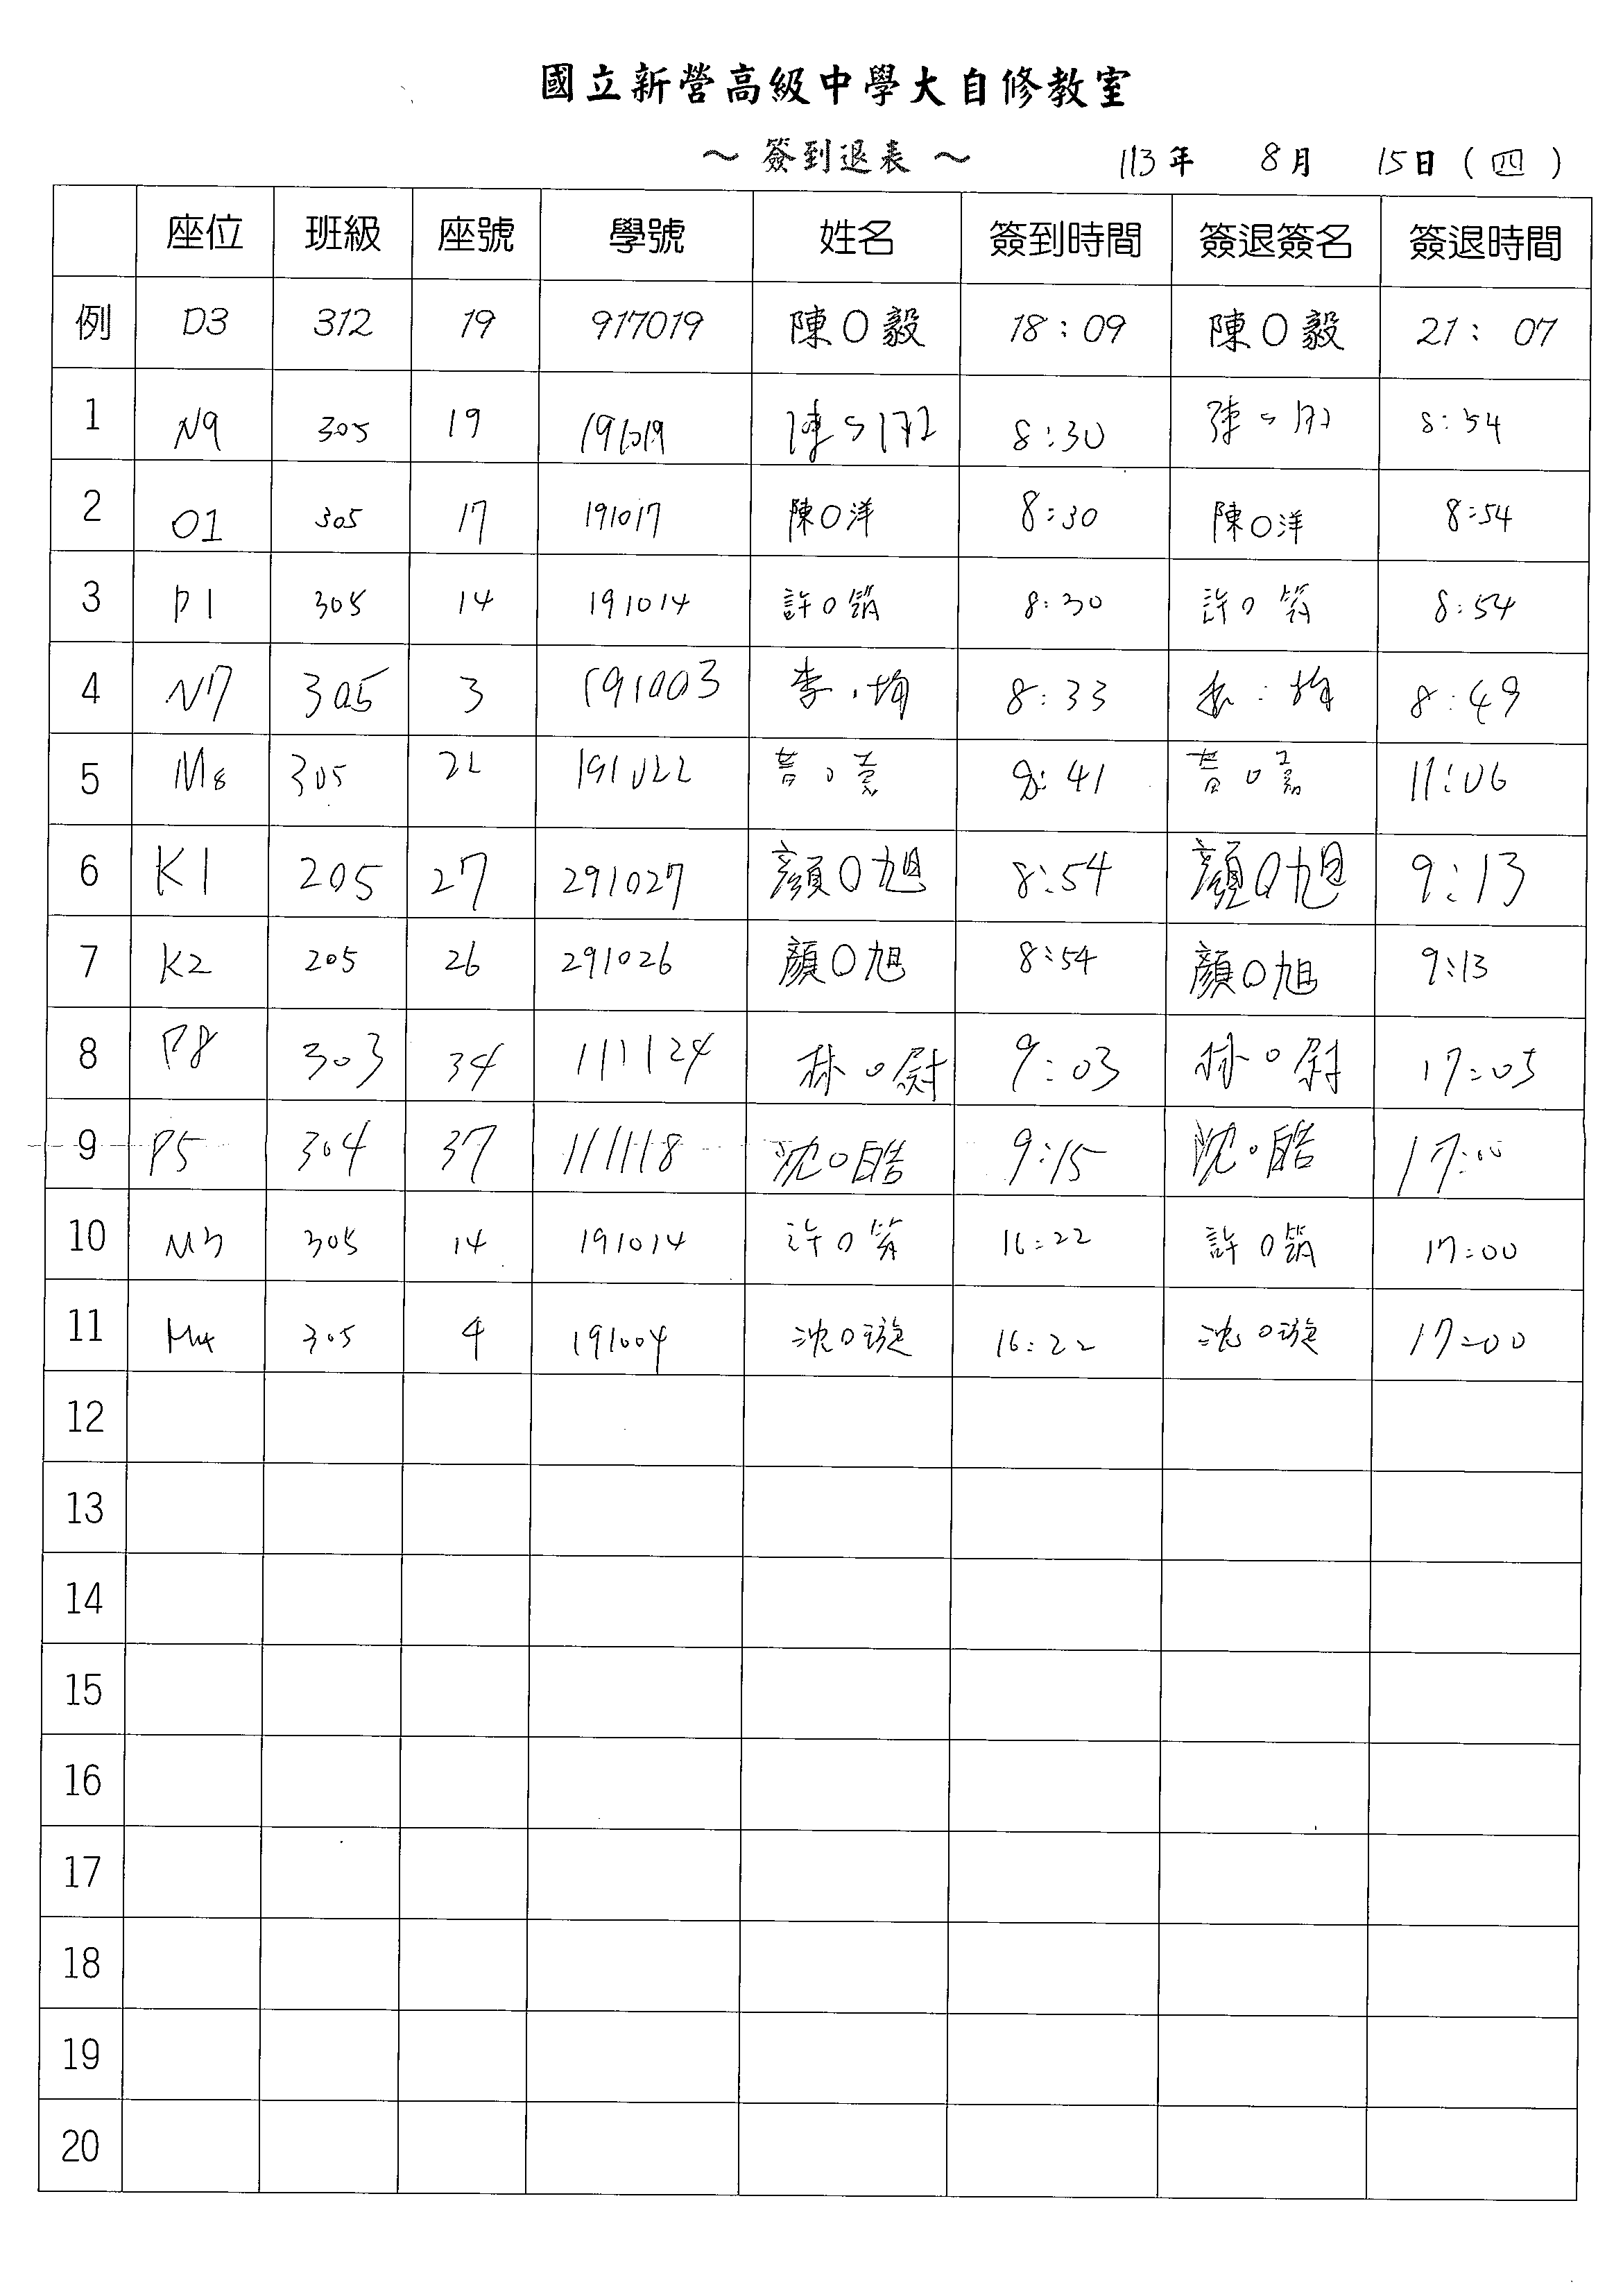 國立新營高級中學大自修教室
～ 簽到退表 ～ 113年 8月 15日(四)
座位 班級 座號 學號 姓名 簽到時間 簽退簽名 簽退時間
例 D3 312 19 917019 陳O毅 18:09 陳O毅 21:07
1 N9 305 19 191019 陳 8:30 陳 8:54
2 O1 305 17 191017 陳O洋 8:30 陳O洋 8:54
3 P1 305 14 191014 許O筑 8:30 許O筑 8:54
4 N7 305 3 191003 李 8:33 8:49
5 M8 305 22 191022 黃O嘉 8:41 黃O嘉 11:06
6 K1 205 27 291027 顏O旭 8:54 顏O旭 9:13
7 K2 205 26 291026 顏O旭 8:54 顏O旭 9:13
8 P8 303 34 111124 林O尉 9:03 林O尉 17:05
9 P5 304 37 111118 沈O皓 9:15 沈O皓 17:00
10 M3 305 14 191014 許O筑 16:22 許O筑 17:00
11 M4 305 4 191004 沈O璇 16:22 沈O璇 17:00
12
13
14
15
16
17
18
19
20